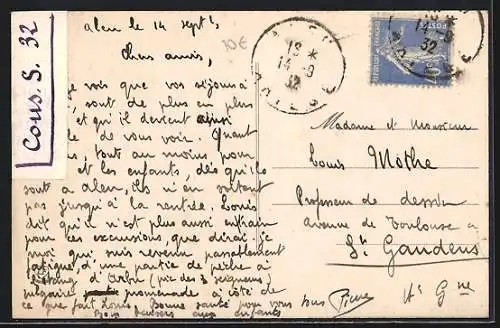 Cous. S. 32
Aleu le 14 septbre
30€
Chers amis,
Je vois que vos séjours à
sont de plus en plus
et qu'il devient aussi
de vous voir. Quant
, tout au moins, pour
et les enfants, dès qu'ils
sont à Aleu, ils n'en sortent
pas jusqu'à la rentrée. Louis
dit qu'il n'est plus aussi entrain
pour les excursions, que dirai-je
moi qui suis revenu passablement
fatigué d'une partie de pêche à
(pic des 3 seigneurs)
promenade à côté de
ce que fait Louis. Bonne santé pour vous tous
Bons baisers aux enfants
Pierre
ALEU
13 *
14-9
32
ARIEGE
POSTES
14-9
32
Madame et Monsieur
Louis Mothe
Professeur de dessin
avenue de Toulouse
St Gaudens
Hte Gne